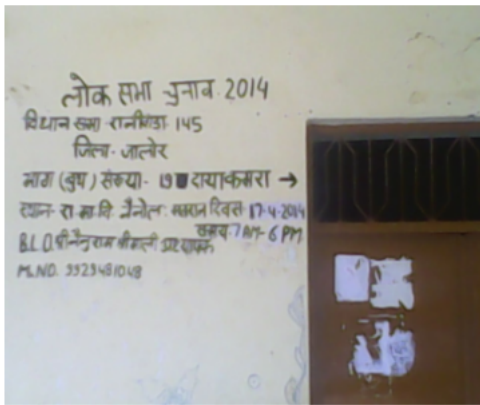 लोक सभा चुनाव 2014
विधान सभा-रानीवाडा 145
जिला- जालोर
भाग (बुथ) संख्या- 19 दायाकमरा →
स्थान- रा.मा.वि. मतदान दिवस 17-4-2014
समय- 7AM- 6 PM
B.L.O. श्री राम श्रीमाली अध्यापक
M.NO. 9929481048